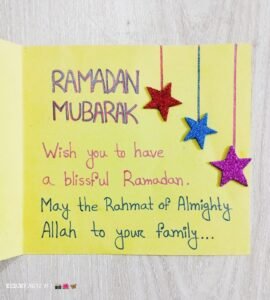 RAMADAN
MUBARAK
Wish you to have
a blissful Ramadan.
May the Rahmat of Almighty
Allah to your family...